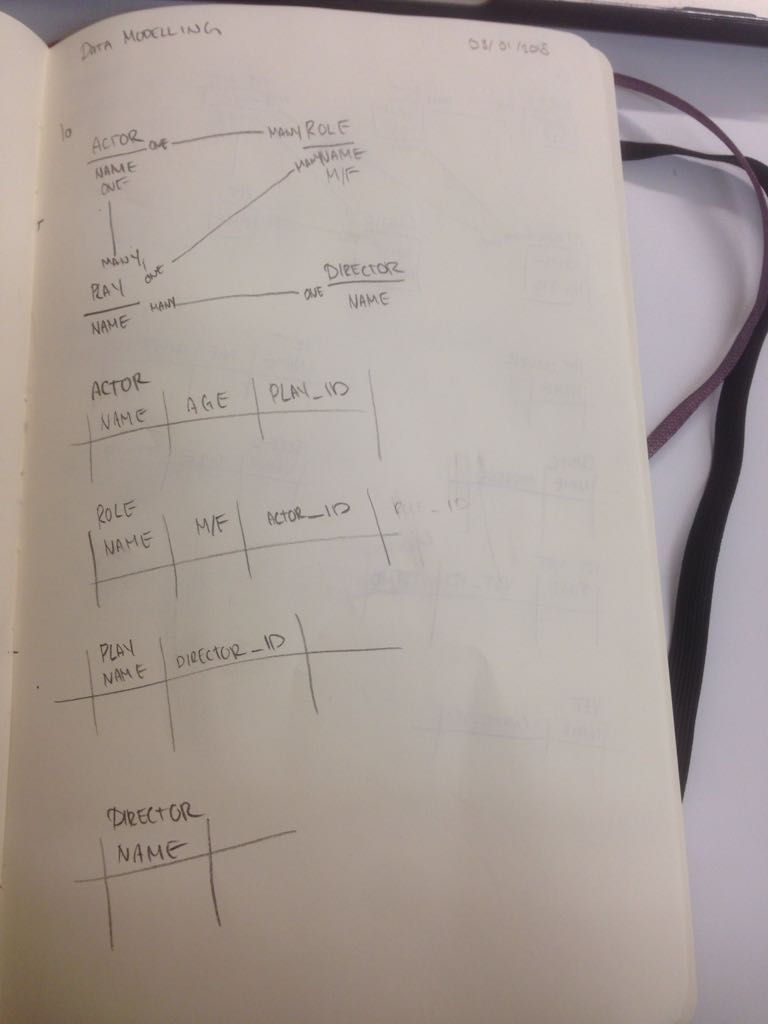 DATA MODELLING
ACTOR ONE MANY ROLE
NAME MANY NAME
ONE M/F
MANY ONE
PLAY MANY ONE DIRECTOR
NAME NAME
ACTOR
NAME AGE PLAY_ID
ROLE
NAME M/F ACTOR_ID
PLAY
NAME DIRECTOR_ID
DIRECTOR
NAME